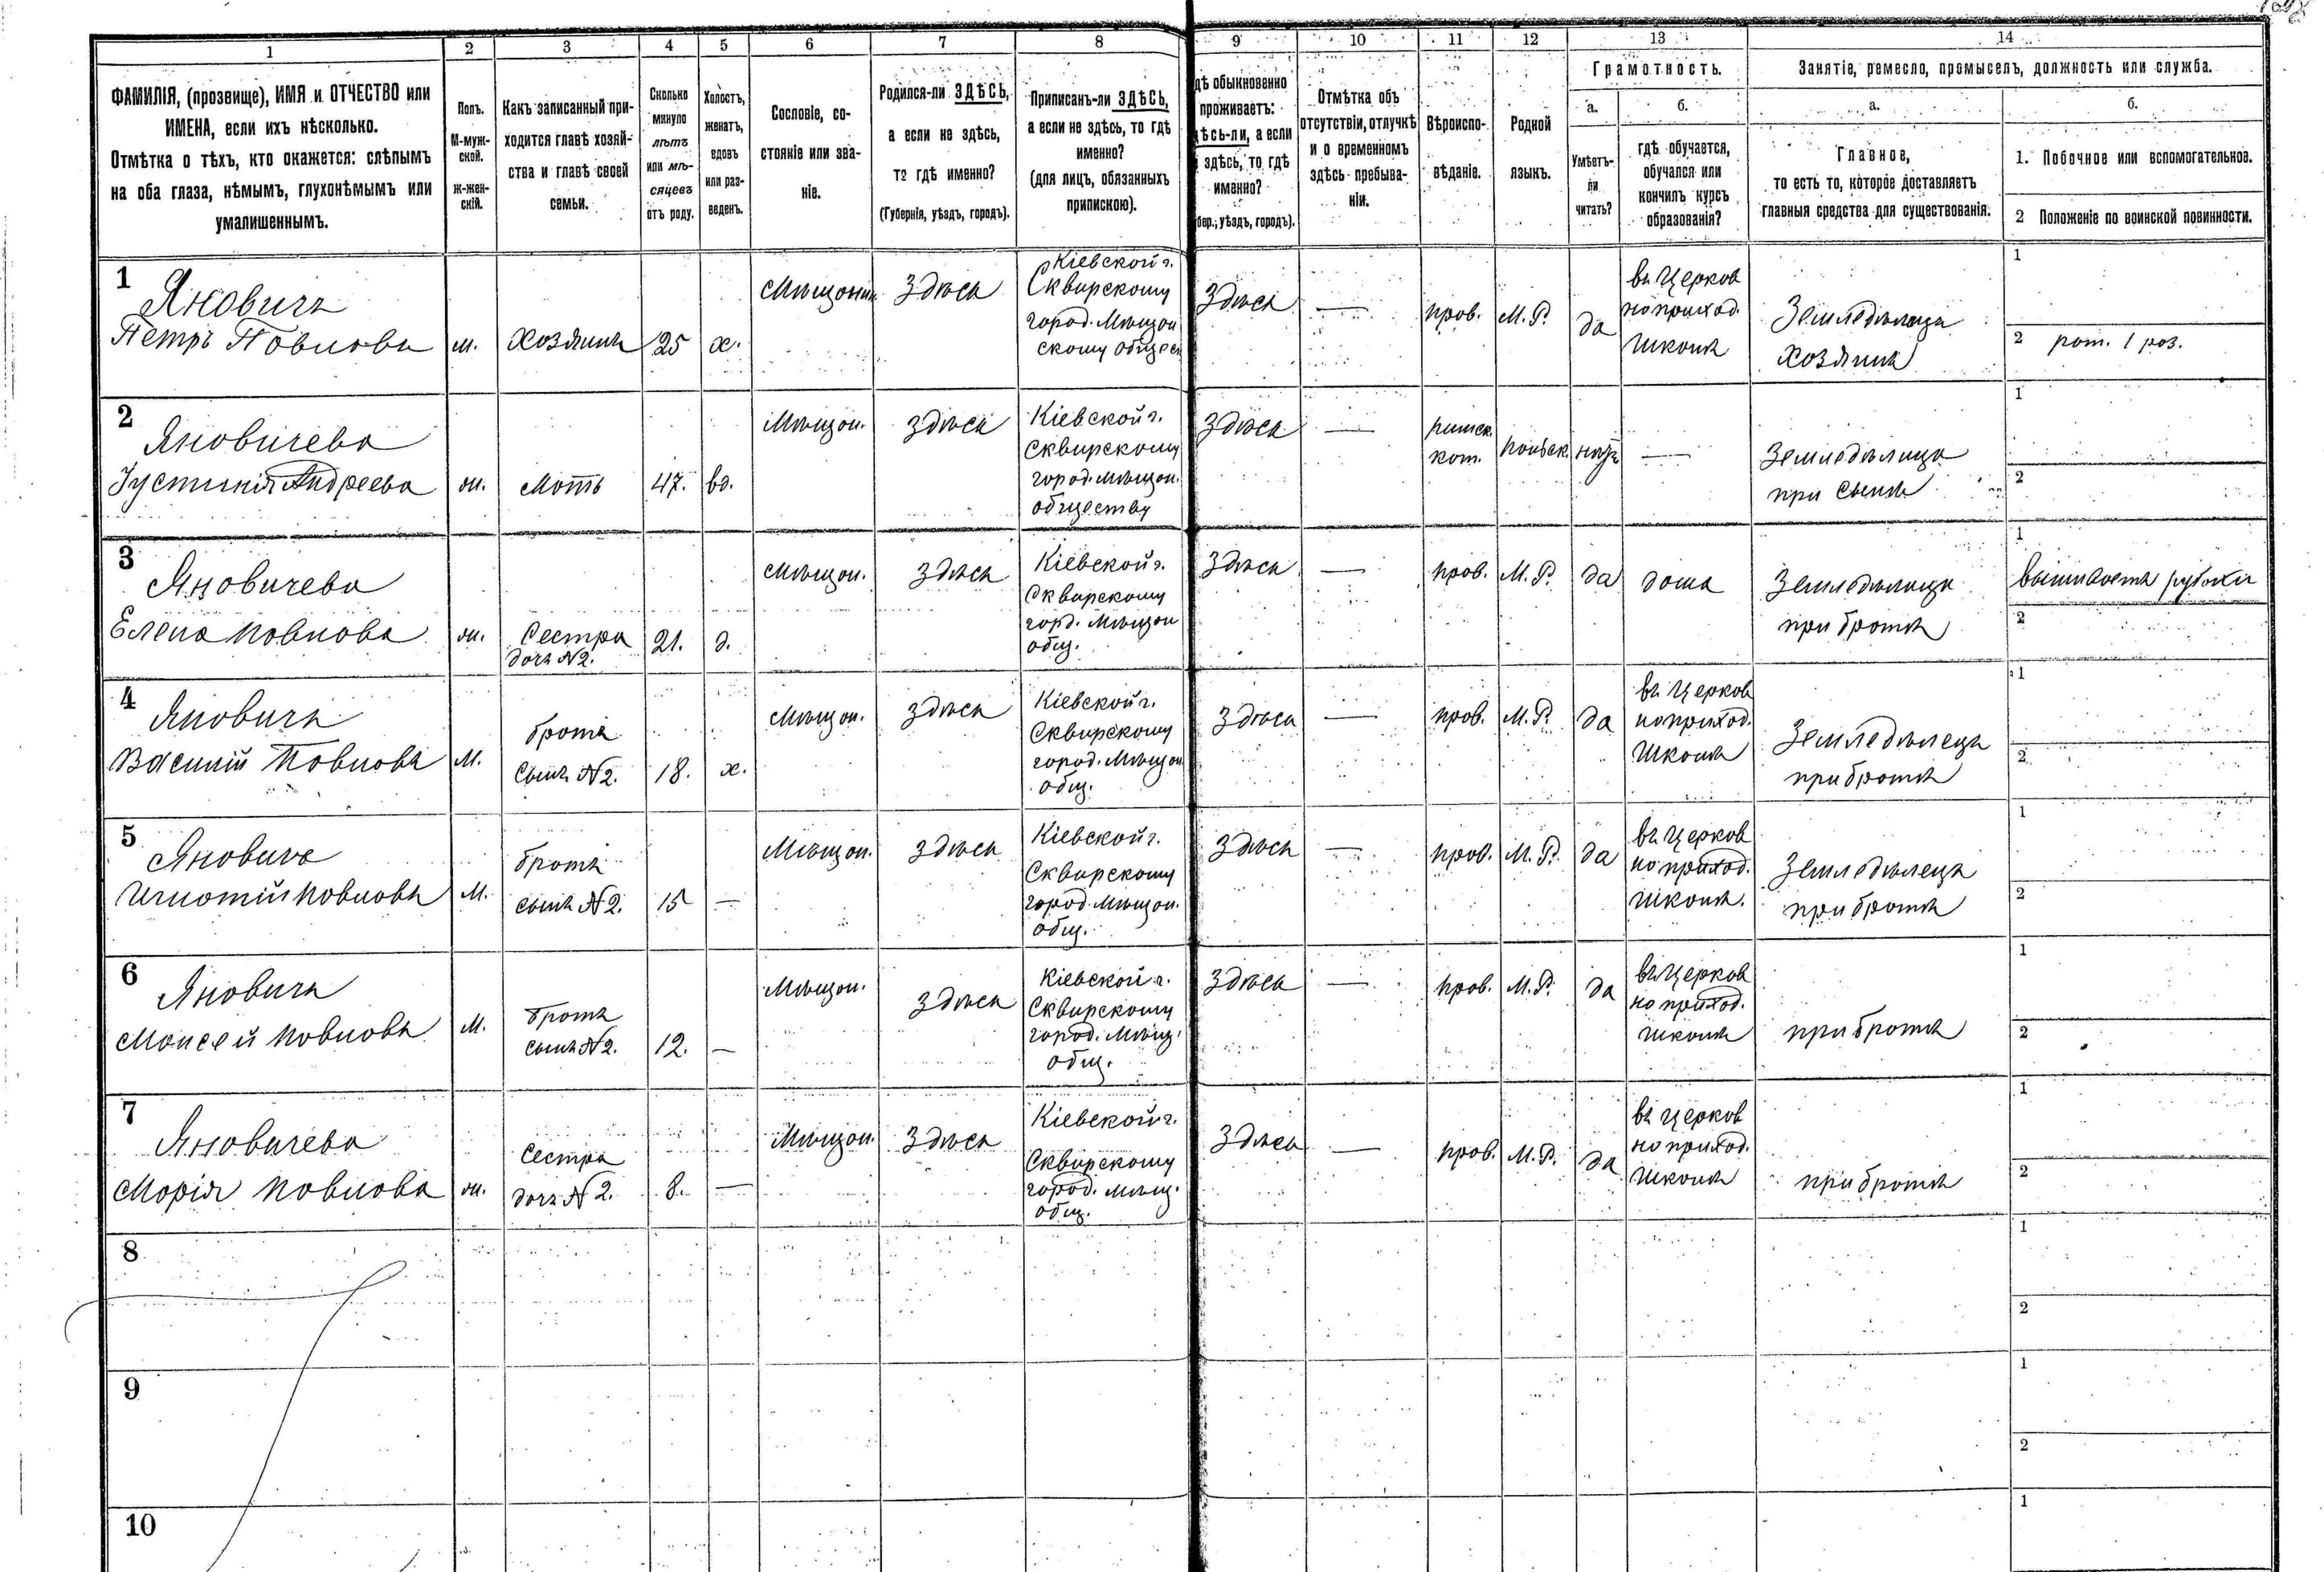 1 2 3 4 5 6 7 8 9 10 11 12 13 14
ФАМИЛІЯ, (прозвище), ИМЯ и ОТЧЕСТВО или
ИМЕНА, если ихъ нѣсколько.
Отмѣтка о тѣхъ, кто окажется: слѣпымъ
на оба глаза, нѣмымъ, глухонѣмымъ или
умалишеннымъ.
Полъ.
М-муж-
ской.
ж-жен-
скій.
Какъ записанный при-
ходится главѣ хозяй-
ства и главѣ своей
семьи.
Сколько
минуло
лѣтъ
или мѣ-
сяцевъ
отъ роду.
Холостъ,
женатъ,
вдовъ
или раз-
веденъ.
Сословіе, со-
стояніе или зва-
ніе.
Родился-ли ЗДѢСЬ,
а если не здѣсь,
то гдѣ именно?
(Губернія, уѣздъ, городъ).
Приписанъ-ли ЗДѢСЬ,
а если не здѣсь, то гдѣ
именно?
(для лицъ, обязанныхъ
припискою).
дѣ обыкновенно
проживаетъ:
дѣсь-ли, а если
здѣсь, то гдѣ
именно?
бер., уѣздъ, городъ).
Отмѣтка объ
отсутствіи, отлучкѣ
и о временномъ
здѣсь пребыва-
ніи.
Вѣроиспо-
вѣданіе.
Родной
языкъ.
Грамотность.
а.
Умѣетъ-
ли
читать?
б.
гдѣ обучается,
обучался или
кончилъ курсъ
образованія?
Занятіе, ремесло, промыселъ, должность или служба.
а.
Главное,
то есть то, которое доставляетъ
главныя средства для существованія.
б.
1. Побочное или вспомогательное.
2 Положеніе по воинской повинности.
1
Яновичъ
Петръ Павловъ
м.
Хозяинъ
25
х.
Мѣщанин
Здѣсь
Кіевской г.
Сквирскому
город. Мѣщан
скому общес
Здѣсь
—
прав.
М. Р.
да
въ Церков
но приход.
школѣ
Земледѣлецъ
хозяинъ
1
2 рат. 1 раз.
2
Яновичева
Іустинія Андреева
ж.
Мать
47.
вд.
Мѣщан.
Здѣсь
Кіевской г.
Сквирскому
город. мѣщан.
обществу
Здѣсь
—
римск.
кат.
польск
нѣтъ
—
Земледѣлица
при сынѣ
1
2
3
Яновичева
Елена Павлова
ж.
Сестра
дочь №2.
21.
д.
Мѣщан.
Здѣсь
Кіевской г.
Сквирскому
горд. мѣщан
общ.
Здѣсь
—
прав.
М. Р.
да
дома
Земледѣлица
при братѣ
1
вышиваетъ рубахи
2
4
Яновичъ
Василій Павловъ
м.
братъ
сынъ №2.
18.
х.
Мѣщан.
Здѣсь
Кіевской г.
Сквирскому
город. Мѣщан
общ.
Здѣсь
—
прав.
М. Р.
да
въ Церков
но приход.
школѣ
Земледѣлецъ
при братѣ
1
2
5
Яновичъ
Игнатій Павловъ
м.
братъ
сынъ №2.
15
—
Мѣщан.
Здѣсь
Кіевской г.
Сквирскому
город. мѣщан.
общ.
Здѣсь
—
прав.
М. Р.
да
въ Церков
но приход.
школѣ.
Земледѣлецъ
при братѣ
1
2
6
Яновичъ
Моисей Павловъ
м.
братъ
сынъ №2.
12.
—
Мѣщан.
Здѣсь
Кіевской г.
Сквирскому
город. Мѣщ.
общ.
Здѣсь
—
прав.
М. Р.
да
въ Церков
но приход.
школѣ
при братѣ
1
2
7
Яновичева
Марія Павлова
ж.
Сестра
дочь №2.
8.
—
Мѣщан.
Здѣсь
Кіевской г.
Сквирскому
город. мѣщ.
общ.
Здѣсь
—
прав.
М. Р.
да
въ Церков
но приход.
школѣ
при братѣ
1
2
8
1
2
9
1
2
10
1